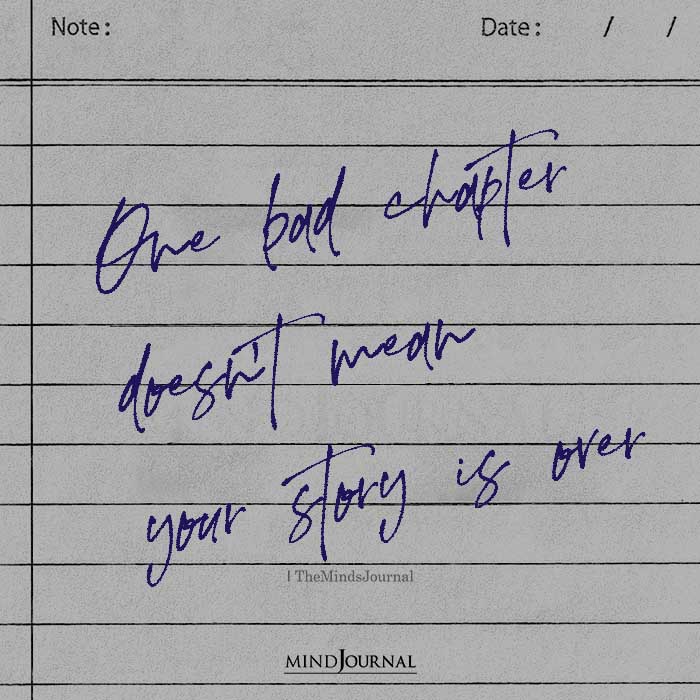 Note: Date: / /
One bad chapter
doesn't mean
your story is over
| TheMindsJournal
MINDJOURNAL